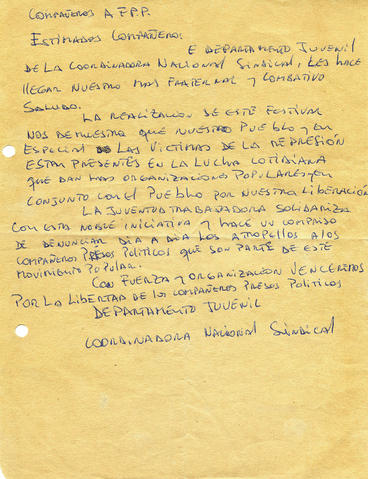 COMPAÑEROS A F.P.P.
ESTIMADOS COMPAÑERO:
E DEPARTAMENTO JUVENIL
DE LA COORDINADORA NACIONAL SINDICAL, LES HACE
LLEGAR NUESTRO MAS FRATERNAL Y COMBATIVO
SALUDO.
LA REALIZACION DE ESTE FESTIVAL
NOS DEMUESTRA QUE NUESTRO PUEBLO Y EN
ESPECIAL LAS VICTIMAS DE LA REPRESIÓN
ESTAN PRESENTES EN LA LUCHA COTIDIANA
QUE DAN LAS ORGANIZACIONES POPULARES Y EN
CONJUNTO CON EL PUEBLO POR NUESTRA LIBERACIÓN
LA JUVENTUD TRABAJADORA SOLIDARIZA
CON ESTA NOBLE INICIATIVA Y HACE UN COMPROMISO
DE DENUNCIAR DIA A DIA LOS ATROPELLOS A LOS
COMPAÑEROS PRESOS POLITICOS QUE SON PARTE DE ESTE
MOVIMIENTO POPULAR.
CON FUERZA Y ORGANIZACION VENCEREMOS
POR LA LIBERTAD DE LOS COMPAÑEROS PRESOS POLITICOS
DEPARTAMENTO JUVENIL
COORDINADORA NACIONAL SINDICAL